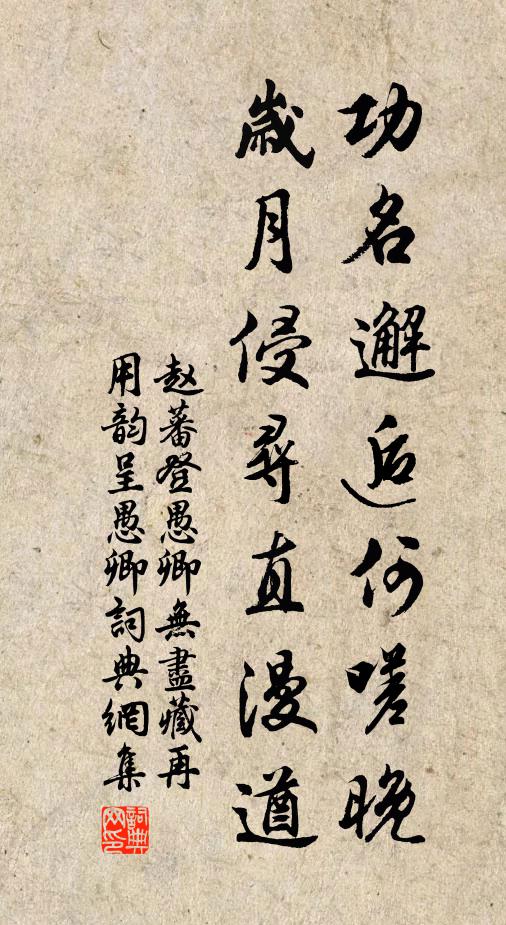 功名邂逅何嗟晚
歲月侵尋直漫遒
赵蕃登愚卿無盡藏再
用韵呈愚卿詞典網集
詞典
网印